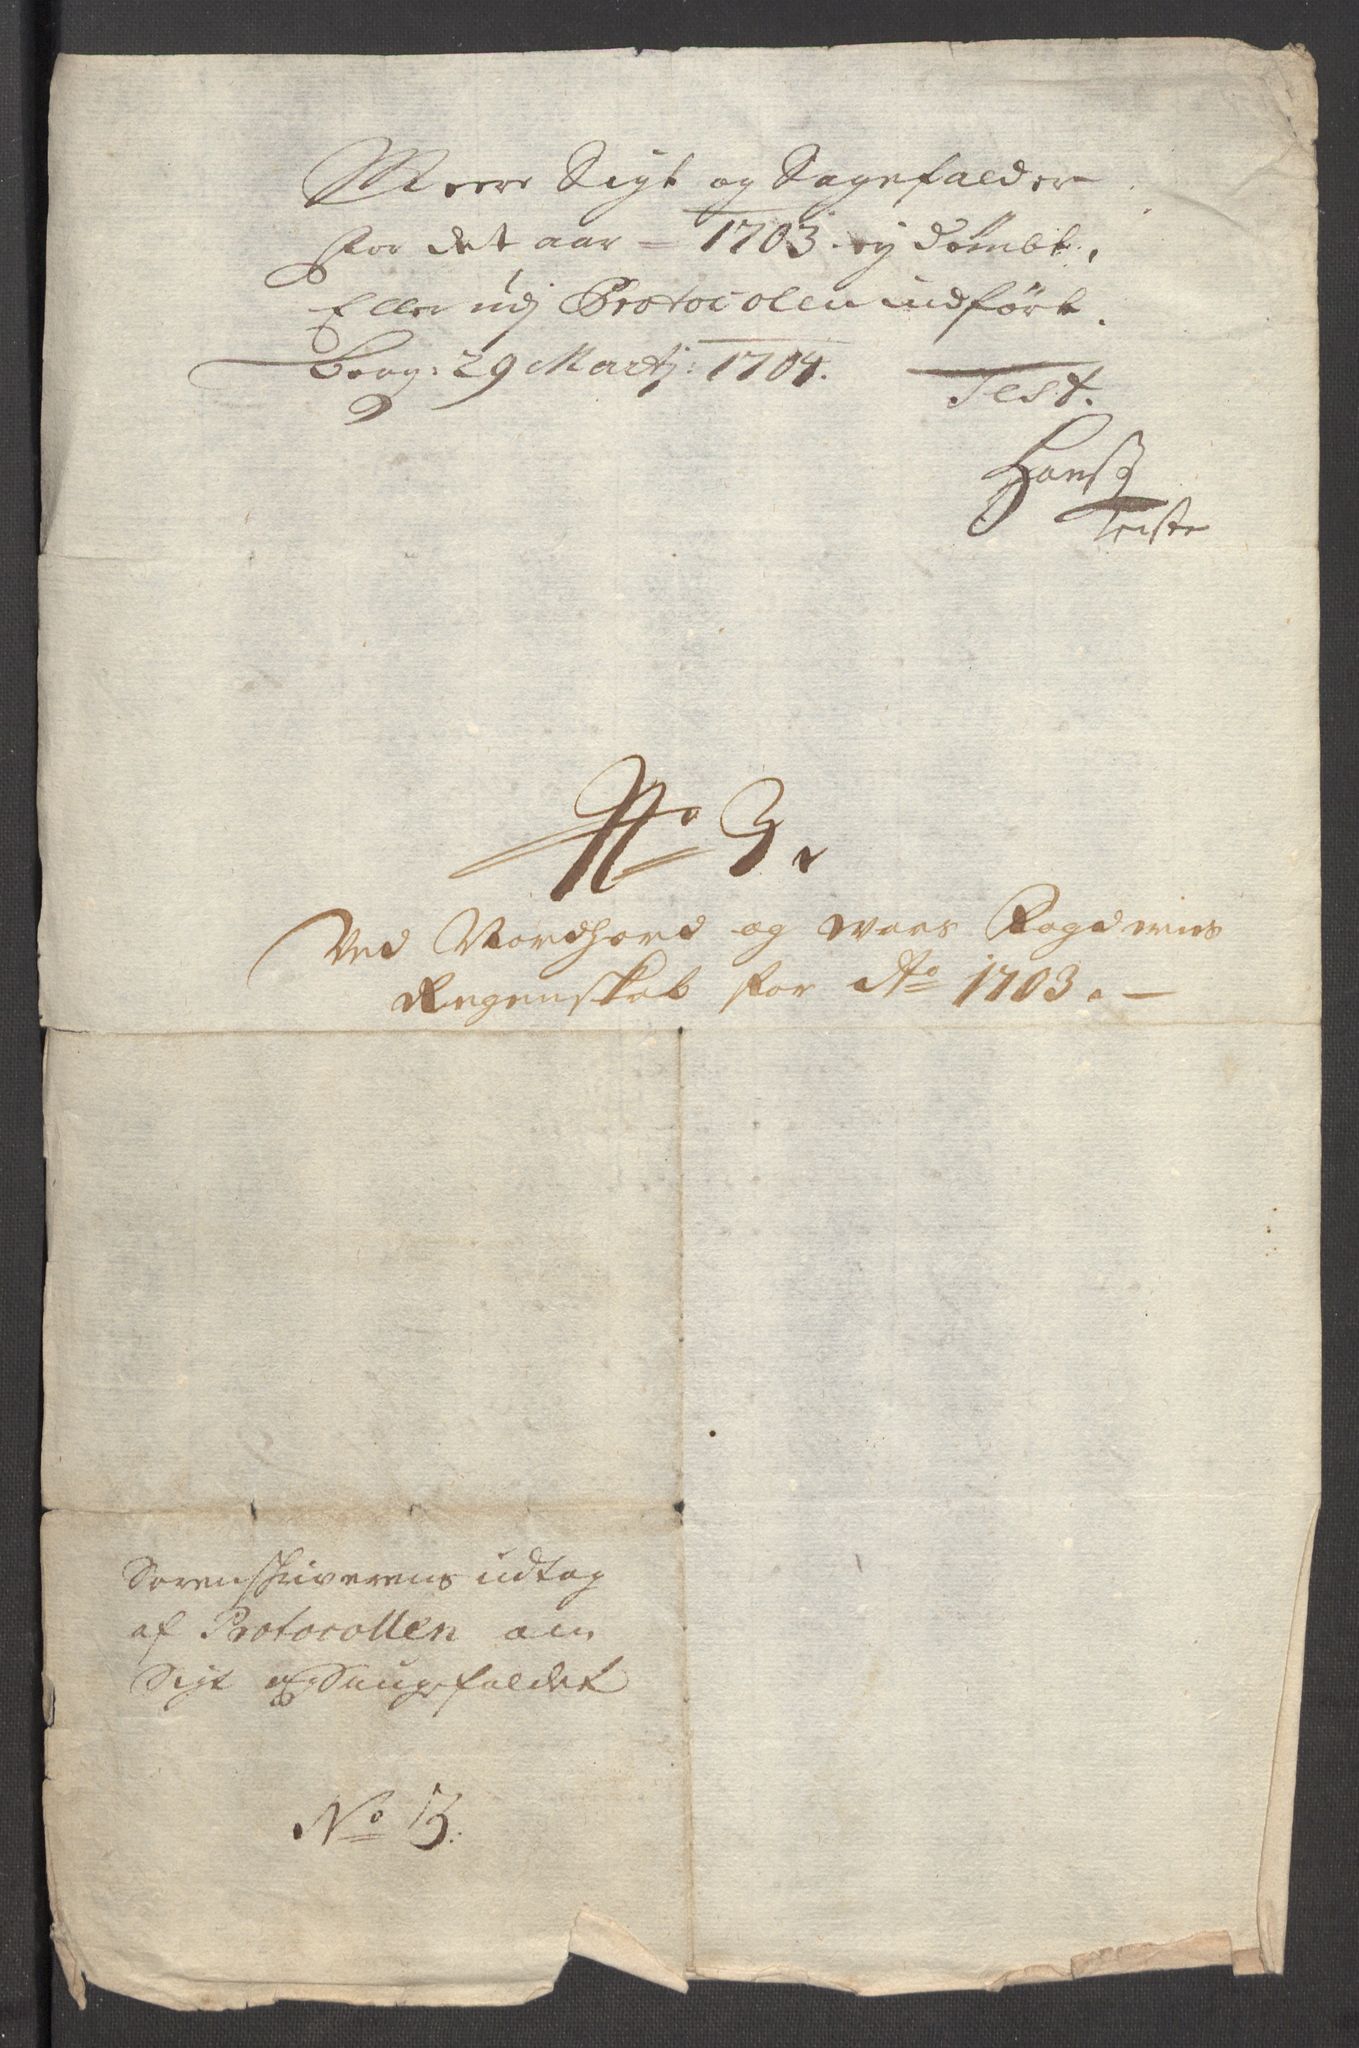 Meere Sigt og Sagefalder
for det aar - 1703. ej dømbt,
Eller udj Protocolen indført.
Berg: 29 Martj: 1704. Test.
Hanß
Teiste
No 3.
Ved Nordhord og Wors Fogderies
Regenskab for Ao 1703. -
Sorenskriverens udtog
af Protocollen om
Sigt og Saugefaldet
No 13.